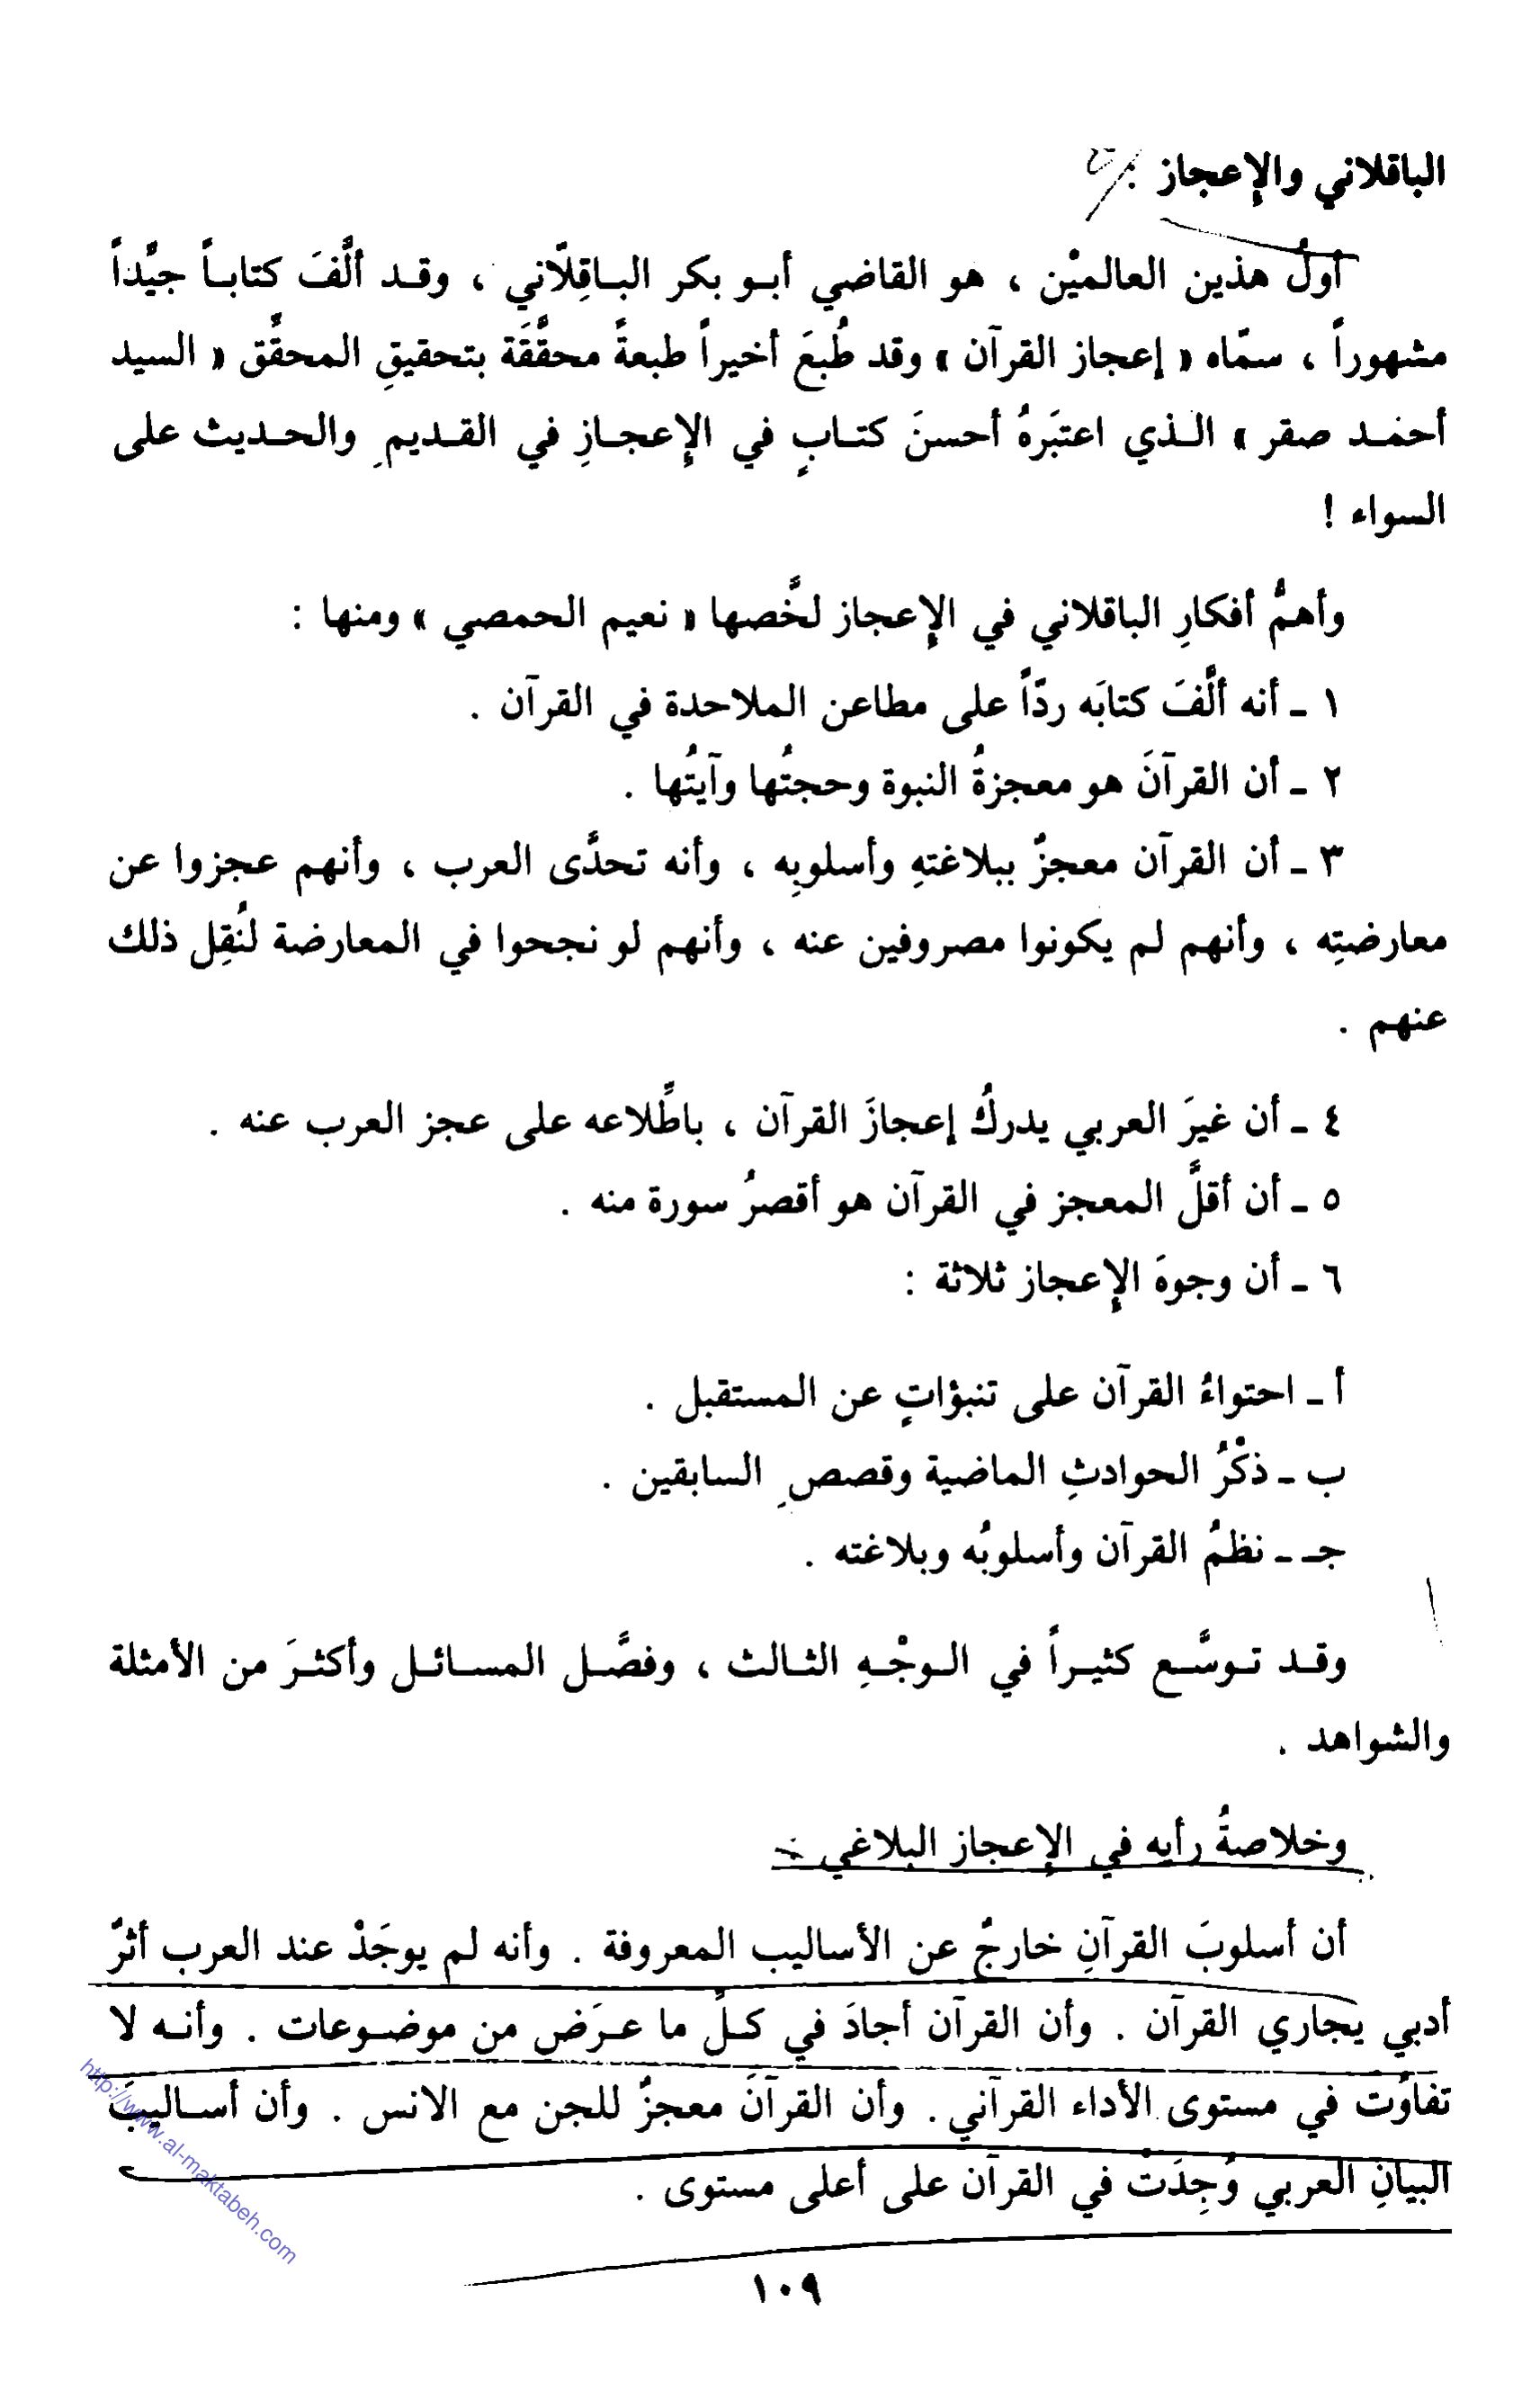 الباقلاني والإعجاز :
أولُ هذين العالميْن ، هو القاضي أبـو بكر البـاقِلّاني ، وقـد ألَّفَ كتابـاً جيِّداً
مشهوراً ، سمّاه « إعجاز القرآن » وقد طُبعَ أخيراً طبعةً محقَّقَة بتحقيقِ المحقِّق « السيد
أحمـد صقر » الـذي اعتبَرهُ أحسنَ كتـابٍ في الإعجـازِ في القـديمِ والحـديث على
السواء !
وأهمُّ أفكارِ الباقلاني في الإعجاز لخَّصها « نعيم الحمصي » ومنها :
١ ـ أنه ألَّفَ كتابَه ردّاً على مطاعن الملاحدة في القرآن .
٢ ـ أن القرآنَ هو معجزةُ النبوة وحجتُها وآيتُها .
٣ ـ أن القرآن معجزٌ ببلاغتهِ وأسلوبِه ، وأنه تحدَّى العرب ، وأنهم عجزوا عن
معارضتِه ، وأنهم لم يكونوا مصروفين عنه ، وأنهم لو نجحوا في المعارضة لنُقِل ذلك
عنهم .
٤ ـ أن غيرَ العربي يدركُ إعجازَ القرآن ، باطِّلاعه على عجز العرب عنه .
٥ ـ أن أقلَّ المعجز في القرآن هو أقصرُ سورة منه .
٦ ـ أن وجوهَ الإعجاز ثلاثة :
أ ـ احتواءُ القرآن على تنبؤاتٍ عن المستقبل .
ب ـ ذكْرُ الحوادثِ الماضية وقصصِ السابقين .
جـ ـ نظمُ القرآن وأسلوبُه وبلاغته .
وقـد تـوسَّـع كثيـراً في الـوجْـهِ الثـالث ، وفصَّـل المسـائـل وأكثـرَ من الأمثلة
والشواهد .
وخلاصةُ رأيه في الإعجاز البلاغي :
أن أسلوبَ القرآنِ خارجٌ عن الأساليب المعروفة . وأنه لم يوجَدْ عند العرب أثرٌ
أدبي يجاري القرآن . وأن القرآن أجادَ في كـلِّ ما عـرَض من موضـوعات . وأنـه لا
تفاوُت في مستوى الأداء القرآني . وأن القرآنَ معجزٌ للجن مع الانس . وأن أسـاليبَ
البيانِ العربي وُجِدَتْ في القرآن على أعلى مستوى .
١٠٩
http://www.al-maktabeh.com